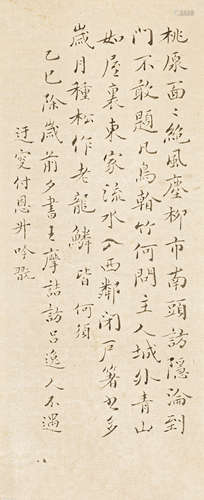 桃原面〻絕風塵柳市南頭訪隱淪到
門不敢題凡鳥看竹何問主人城外青山
如屋裏東家流水入西鄰閉戶箸書多
歲月種松作老龍鱗 皆 何須
乙巳除歲前夕書王摩詰訪呂逸人不遇
迂叟付恩升吟翫